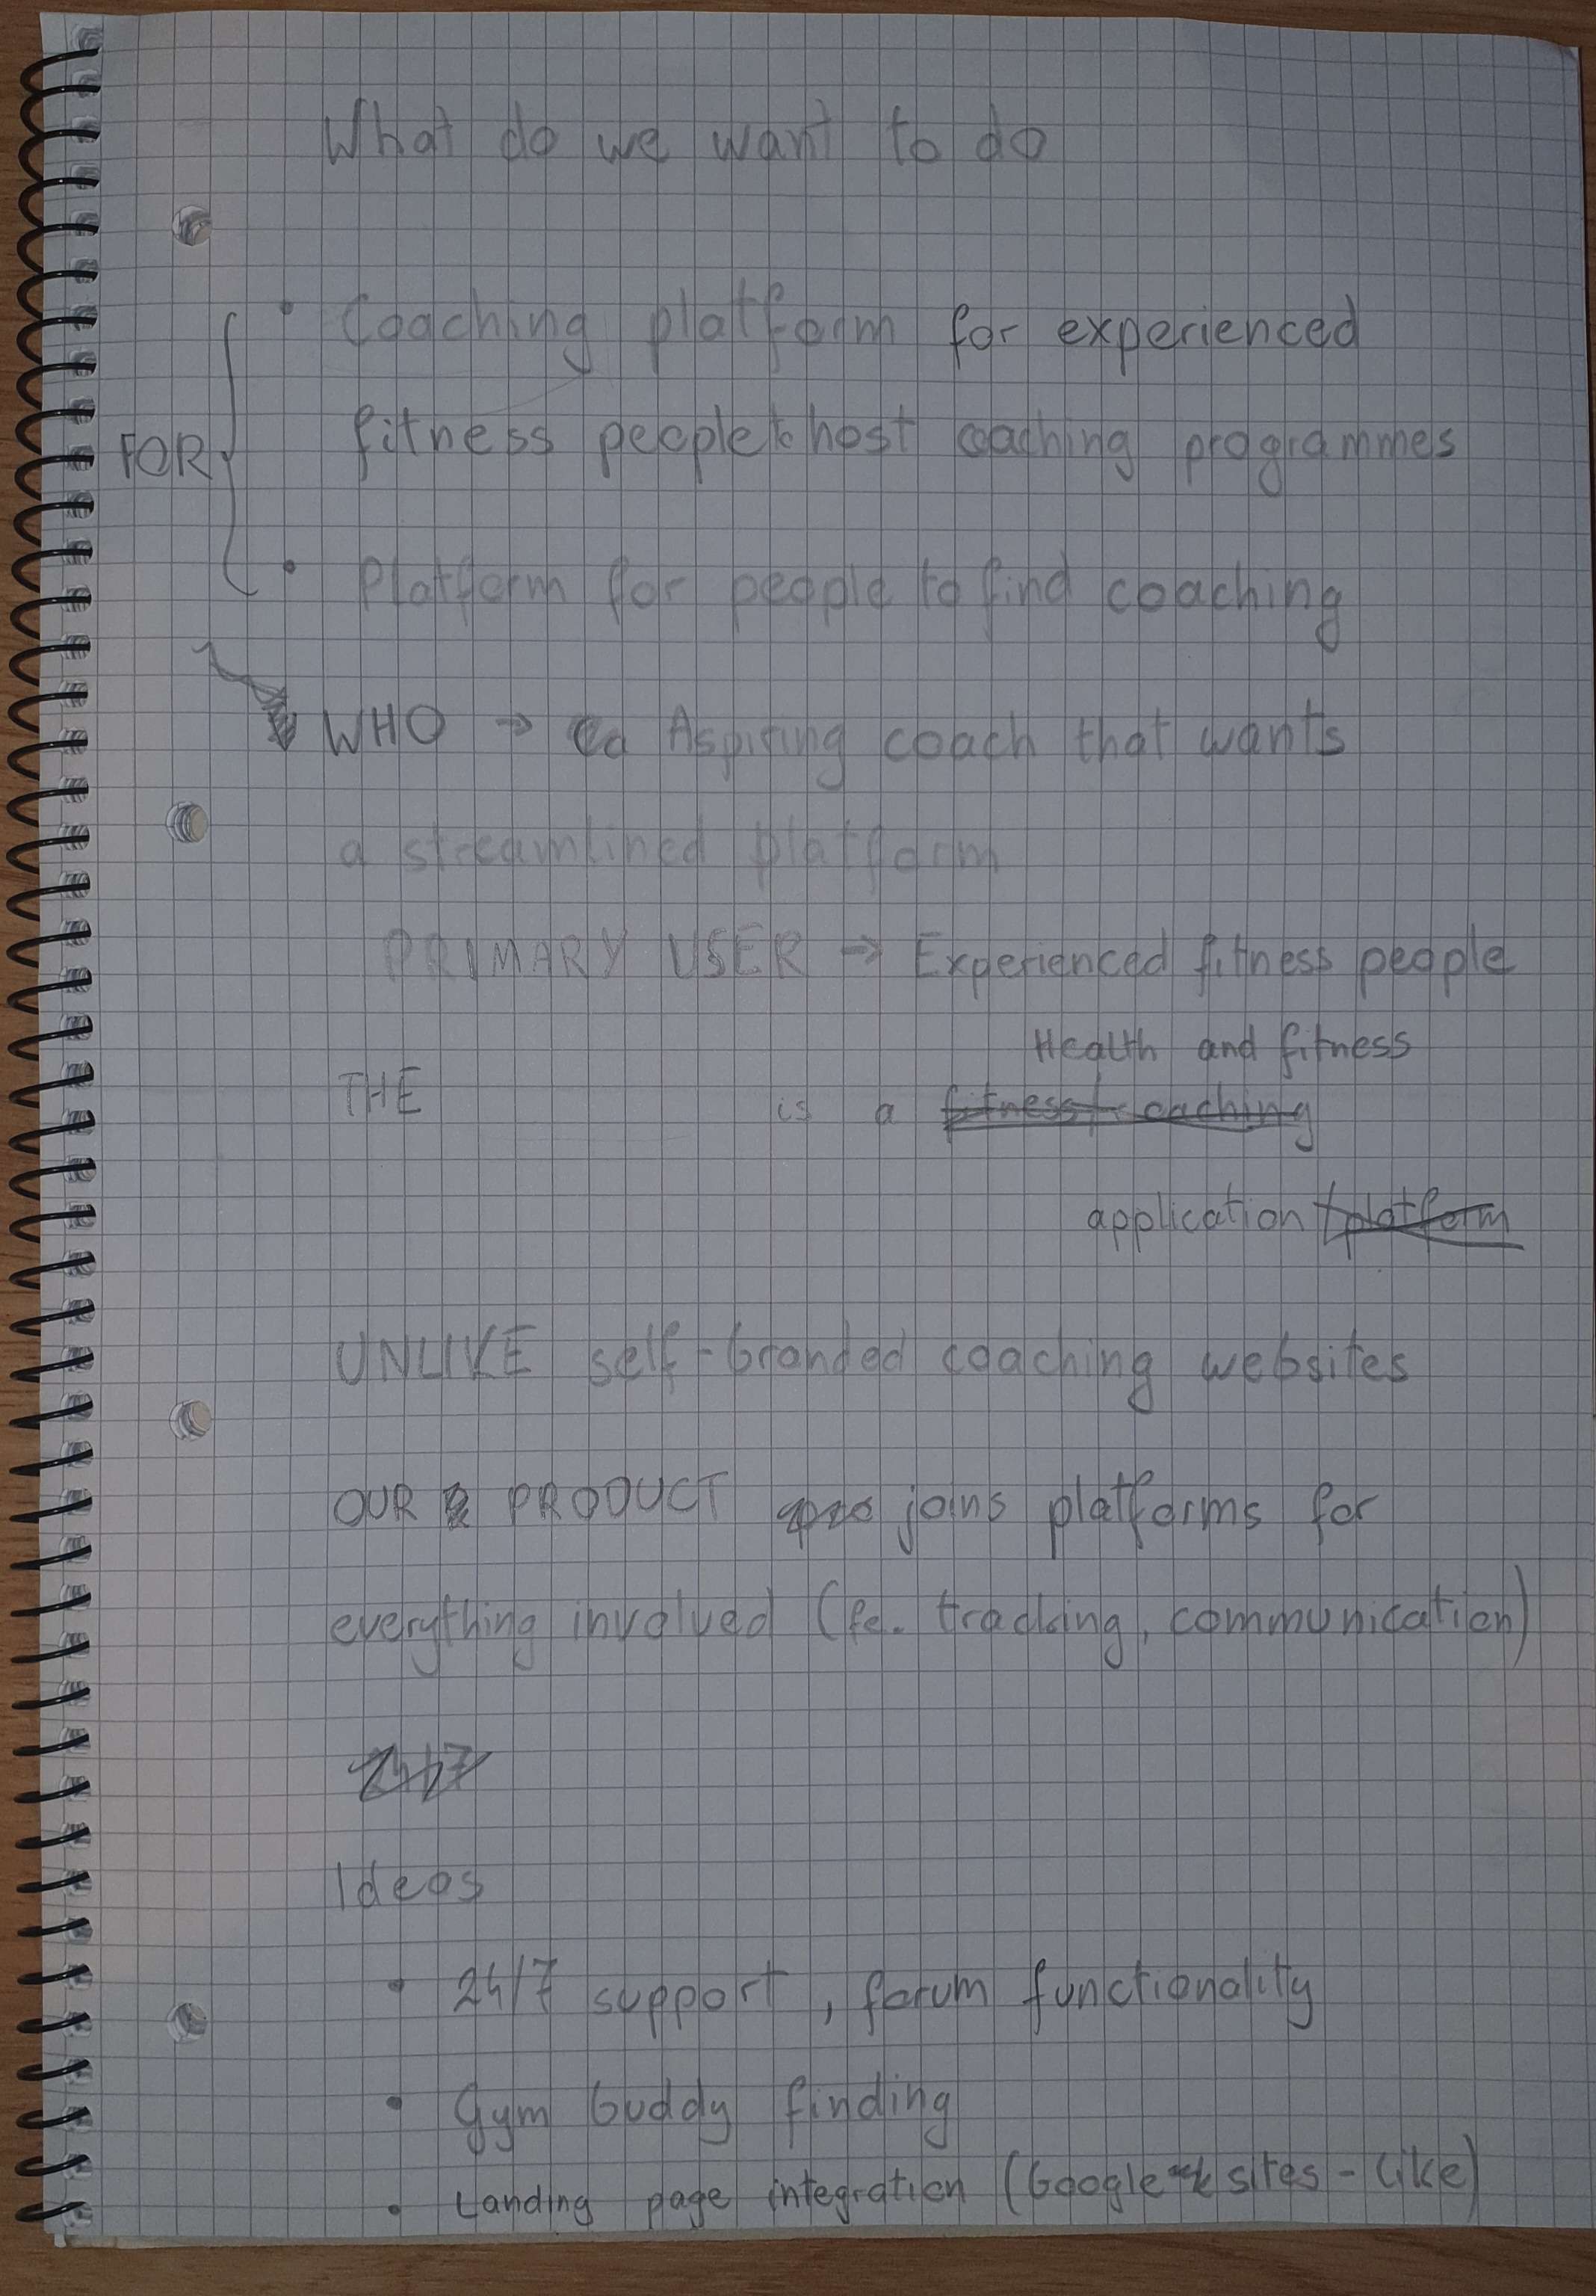 What do we want to do
• Coaching platform for experienced
FOR fitness people to host coaching programmes
• Platform for people to find coaching
WHO → a Aspiring coach that wants
a streamlined platform
PRIMARY USER → Experienced fitness people
Health and fitness
THE is a fitness / coaching
application / platform
UNLIKE self-branded coaching websites
OUR PRODUCT joins platforms for
everything involved (fe. tracking, communication)
24/7
Ideas
• 24/7 support, forum functionality
• Gym buddy finding
• Landing page integration (Google sites-like)